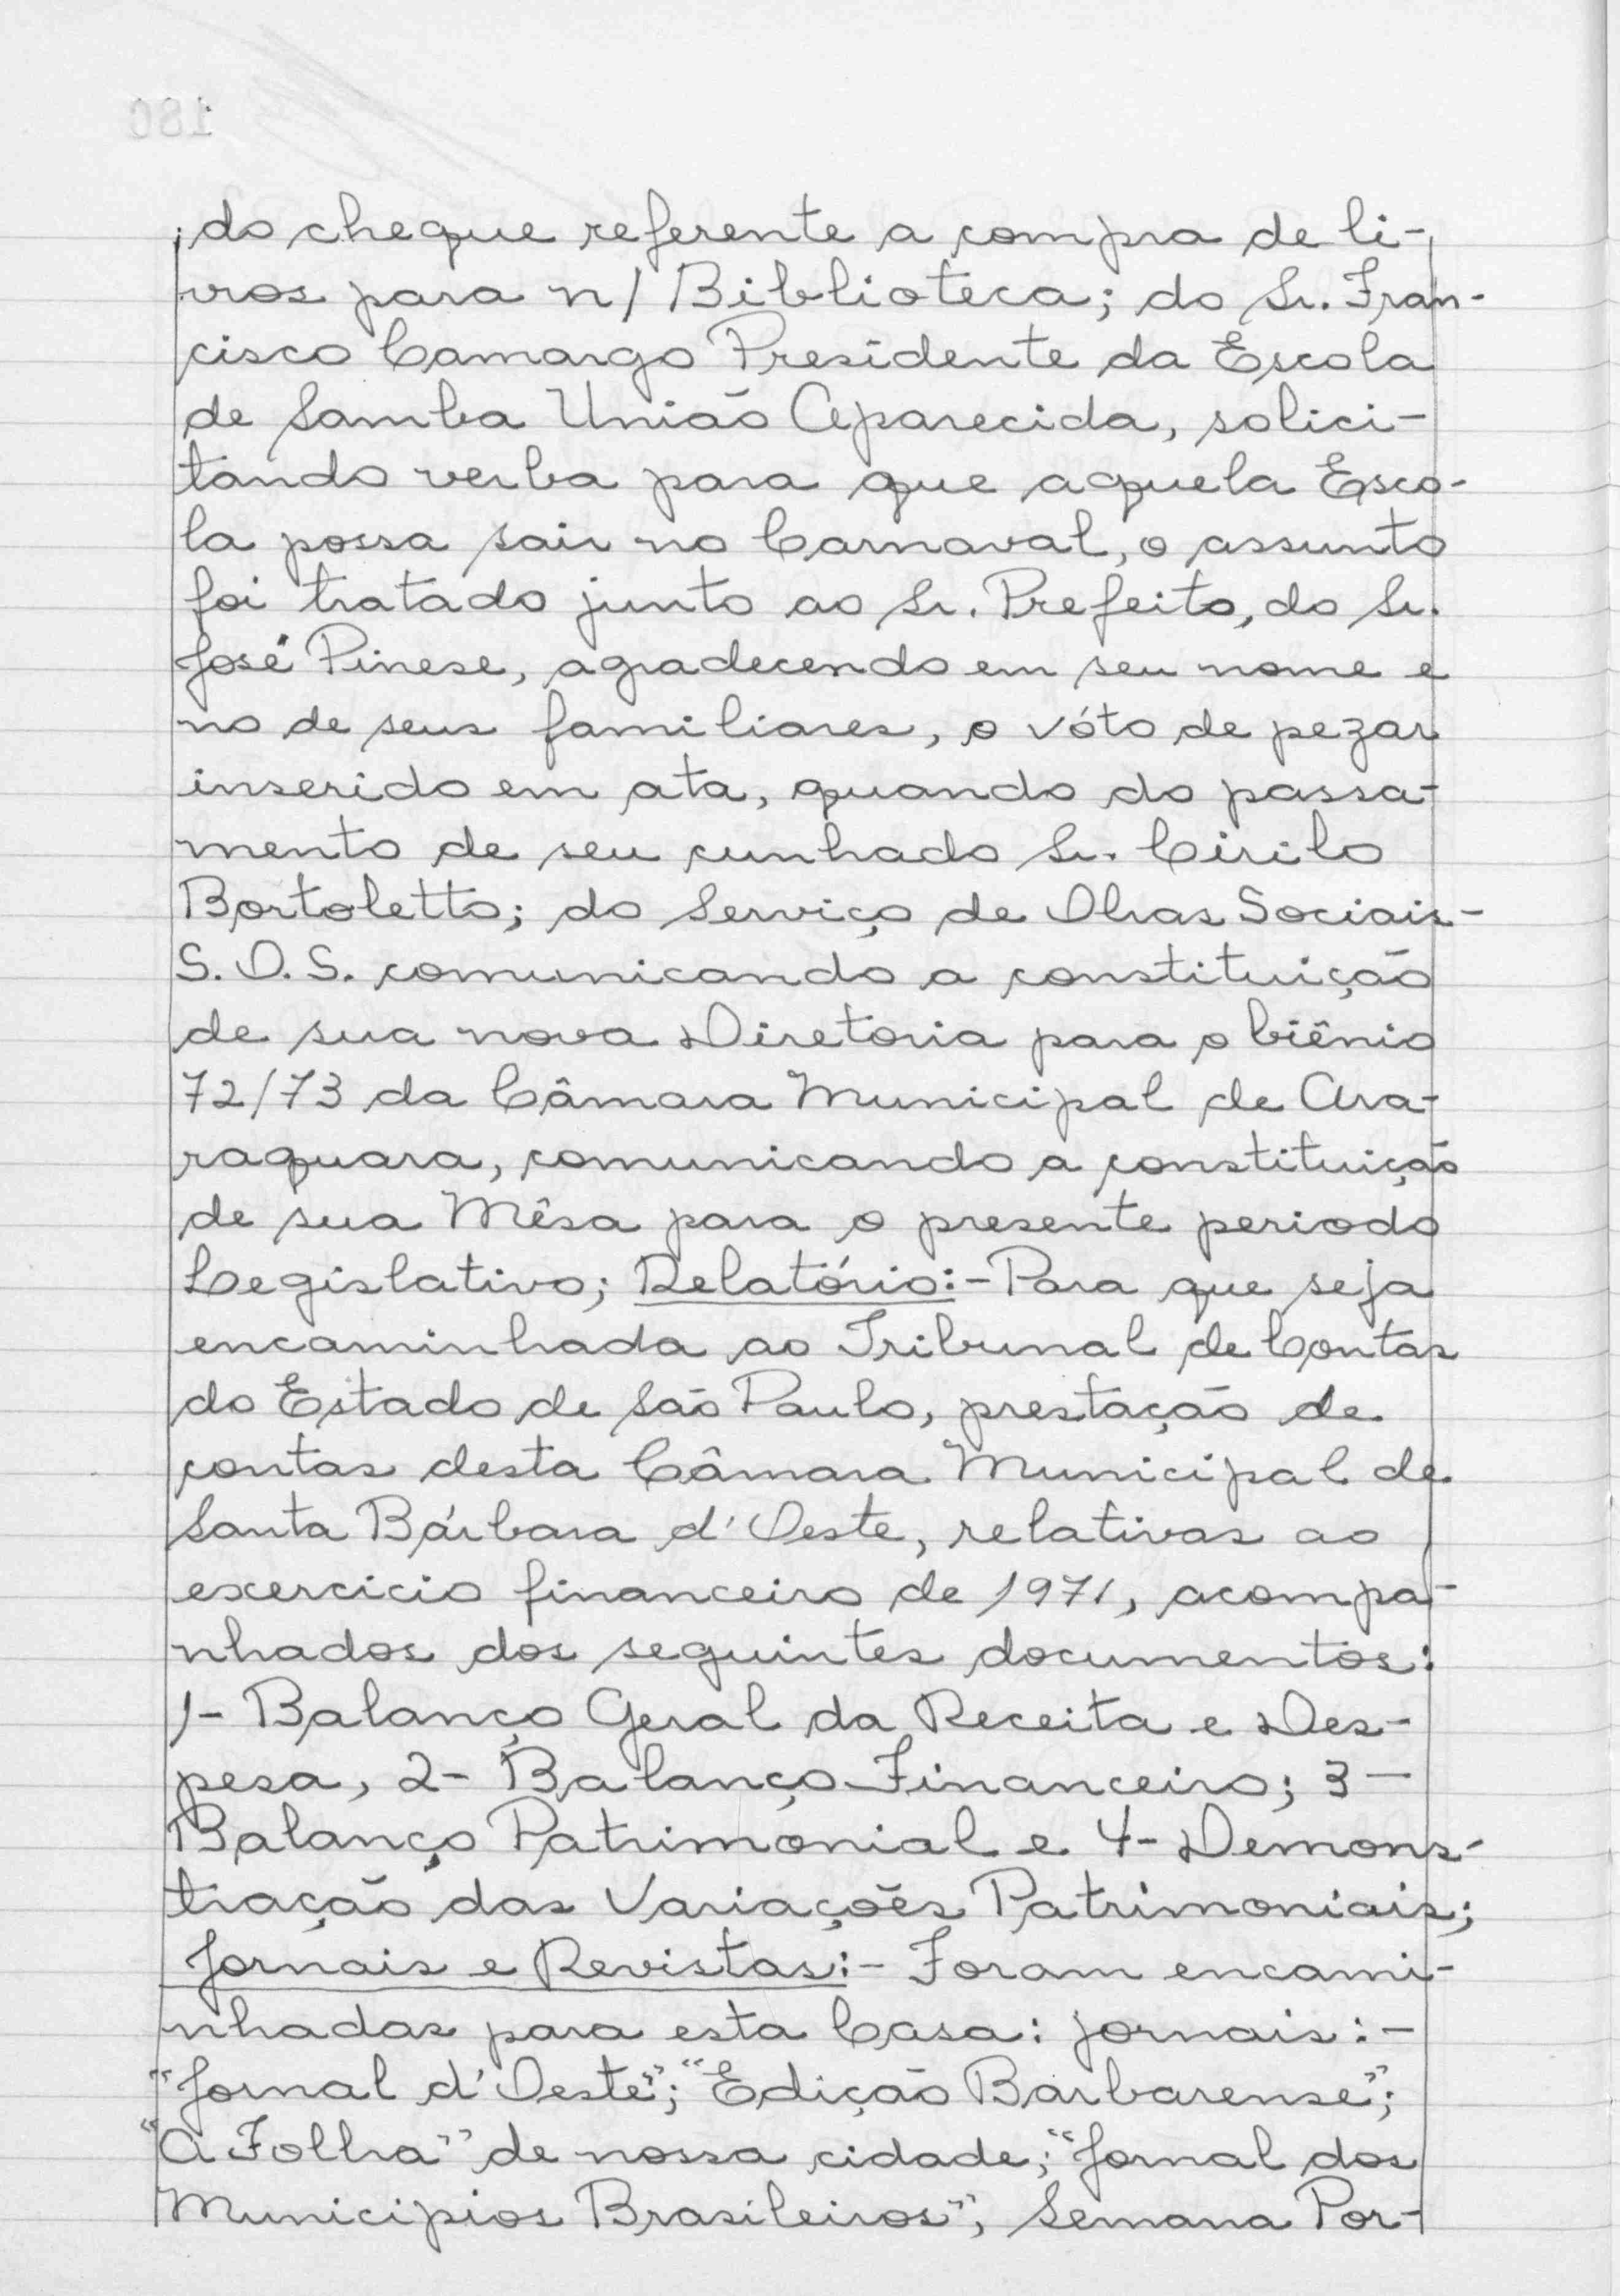 do cheque referente a compra de li-
vros para n/ Biblioteca; do Sr. Fran-
cisco Camargo Presidente da Escola
de Samba União Aparecida, solici-
tando verba para que aquela Esco-
la possa sair no Carnaval, o assunto
foi tratado junto ao Sr. Prefeito, do Sr.
José Pinese, agradecendo em seu nome e
no de seus familiares, o vóto de pezar
inserido em ata, quando do passa-
mento de seu cunhado Sr. Cirilo
Bortoletto; do Serviço de Obras Sociais-
S.O.S. comunicando a constituição
de sua nova Diretoria para o biênio
72/73 da Câmara Municipal de Ara-
raquara, comunicando a constituição
de sua Mêsa para o presente periodo
Legislativo; Relatório:- Para que seja
encaminhada ao Tribunal de Contas
do Estado de São Paulo, prestação de
contas desta Câmara Municipal de
Santa Bárbara d'Oeste, relativas ao
exercicio financeiro de 1971, acompa-
nhados dos seguintes documentos:
1- Balanço Geral da Receita e Des-
pesa, 2- Balanço Financeiro; 3-
Balanço Patrimonial e 4- Demons-
tração das Variações Patrimoniais;
Jornais e Revistas:- Foram encami-
nhadas para esta Casa: jornais:-
"Jornal d'Oeste"; "Edição Barbarense";
"A Folha" de nossa cidade; "Jornal dos
Municipios Brasileiros"; Semana Por-